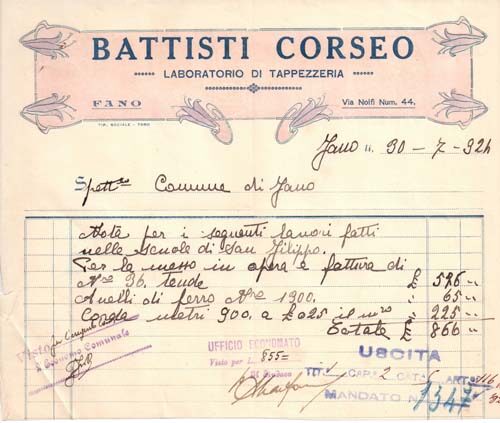 BATTISTI CORSEO
LABORATORIO DI TAPPEZZERIA
FANO
Via Nolfi Num. 44.
TIP. SOCIALE - FANO
Fano li 30-7-924
Spett. Comune di Fano
Nota per i seguenti lavori fatti
nelle scuole di San Filippo.
Per la messo in opera e fattura di
N.ro 36 tende £ 576 "
Anelli di ferro N.ro 1300. " 65 "
Corda metri 900, a £ 0.25 il m.ro 225 "
Totale £ 866 "
Visto
Economo Comunale
UFFICIO ECONOMATO
Visto per L. 855=
Il Sindaco
USCITA
TIT. CAP. 2 CAT. 5 ART. 116
MANDATO N. 1347